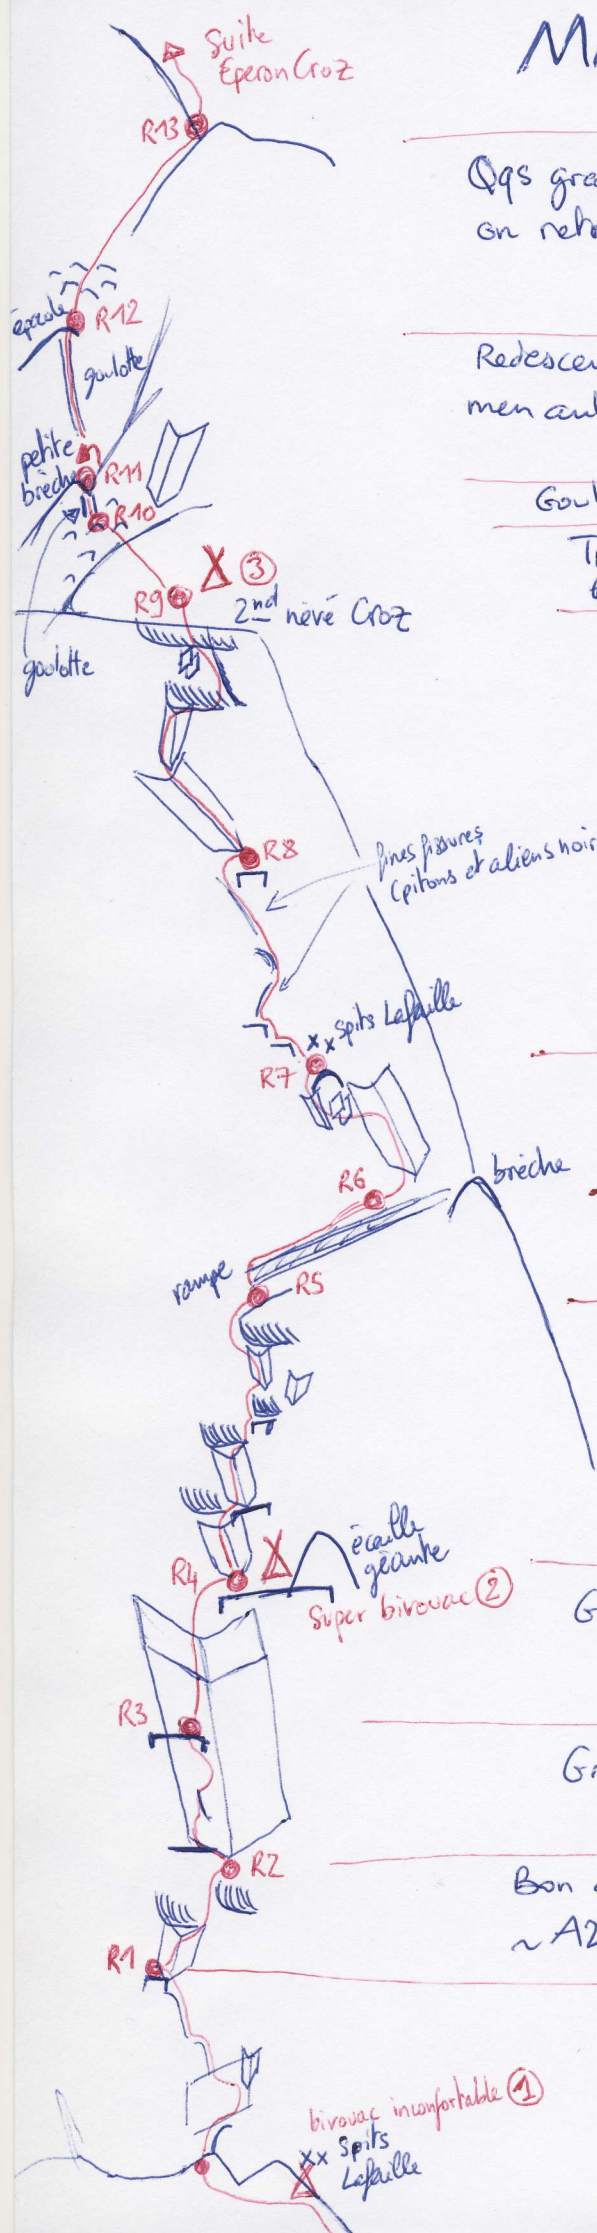 Suite
Eperon Croz
R13
Qqs gra
on reto
épaule
R12
goulotte
Redescen
men ant
petite
brèche
R11
R10
Goul
R9
3
2nd névé Croz
goulotte
R8
fines fissures
(pitons et aliens noir
xx spits Lafaille
R7
R6
brèche
rampe
R5
écaille
géante
R4
Super bivouac 2
G
R3
R2
Bon
~A2
R1
bivouac inconfortable 1
xx Spits
Lafaille